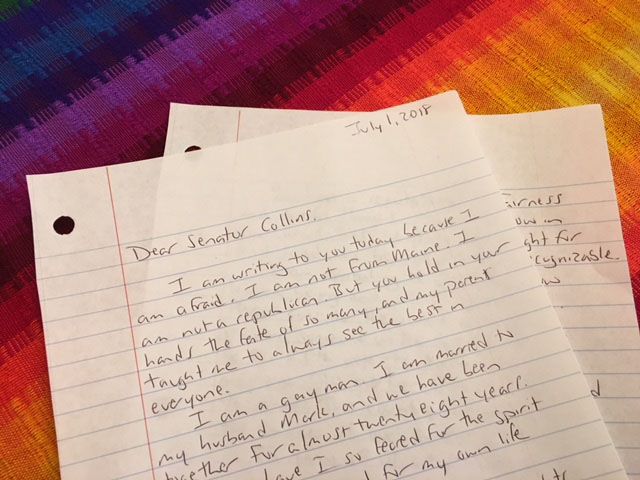 July 1, 2018
Dear Senator Collins.
I am writing to you today because I
am afraid. I am not from Maine. I
am not a republican. But you hold in your
hands the fate of so many, and my parent
taught me to always see the best in
everyone.
I am a gay man. I am married to
my husband Mark, and we have been
together for almost twenty eight years.
have I so feared for the spirit
for my own life
irness
ow in
ght for
cognizable.
ow
d